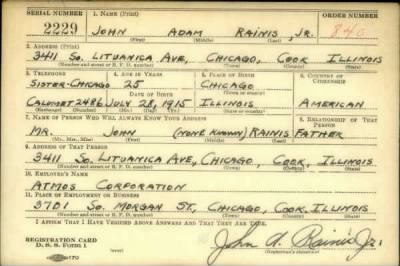 SERIAL NUMBER 1. NAME (Print) ORDER NUMBER
2229 JOHN ADAM RAINIS, JR. 840
(First) (Middle) (Last)
2. ADDRESS (Print)
3411 SO. LITUANICA AVE, CHICAGO, COOK ILLINOIS
(Number and street or R. F. D. number) (Town) (County) (State)
3. TELEPHONE 4. AGE IN YEARS 5. PLACE OF BIRTH 6. COUNTRY OF CITIZENSHIP
SISTER-CHICAGO 25 CHICAGO
DATE OF BIRTH (Town or county)
CALUMET 2486 JULY 28, 1915 ILLINOIS AMERICAN
(Exchange) (Number) (Mo.) (Day) (Yr.) (State or country)
7. NAME OF PERSON WHO WILL ALWAYS KNOW YOUR ADDRESS 8. RELATIONSHIP OF THAT PERSON
MR. JOHN (NONE KNOWN) RAINIS FATHER
(Mr., Mrs., Miss) (First) (Middle) (Last)
9. ADDRESS OF THAT PERSON
3411 SO. LITUANICA AVE, CHICAGO, COOK, ILLINOIS
(Number and street or R. F. D. number) (Town) (County) (State)
10. EMPLOYER'S NAME
ATMOS CORPORATION
11. PLACE OF EMPLOYMENT OR BUSINESS
3701 SO. MORGAN ST, CHICAGO, COOK, ILLINOIS
(Number and street or R. F. D. number) (Town) (County) (State)
I AFFIRM THAT I HAVE VERIFIED ABOVE ANSWERS AND THAT THEY ARE TRUE.
REGISTRATION CARD
D. S. S. Form 1 John A. Rainis Jr.
(Registrant's signature)